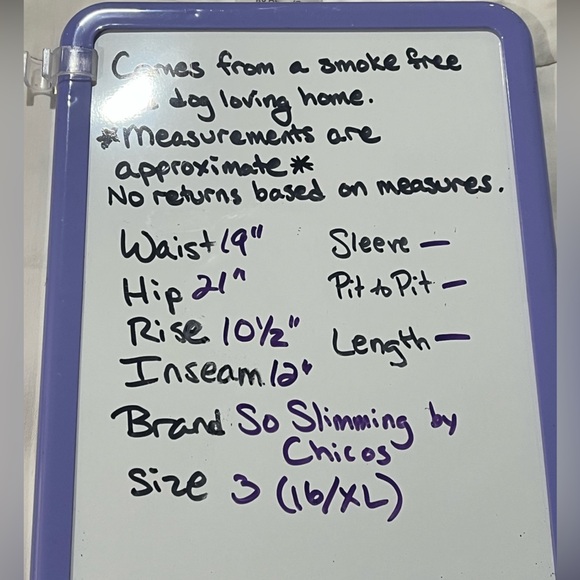 Comes from a smoke free
dog loving home.
*Measurements are
approximate*
No returns based on measures.
Waist 19"
Sleeve —
Hip 21"
Pit to Pit —
Rise 10½"
Length —
Inseam 12"
Brand So Slimming by
Chicos
Size 3 (16/XL)